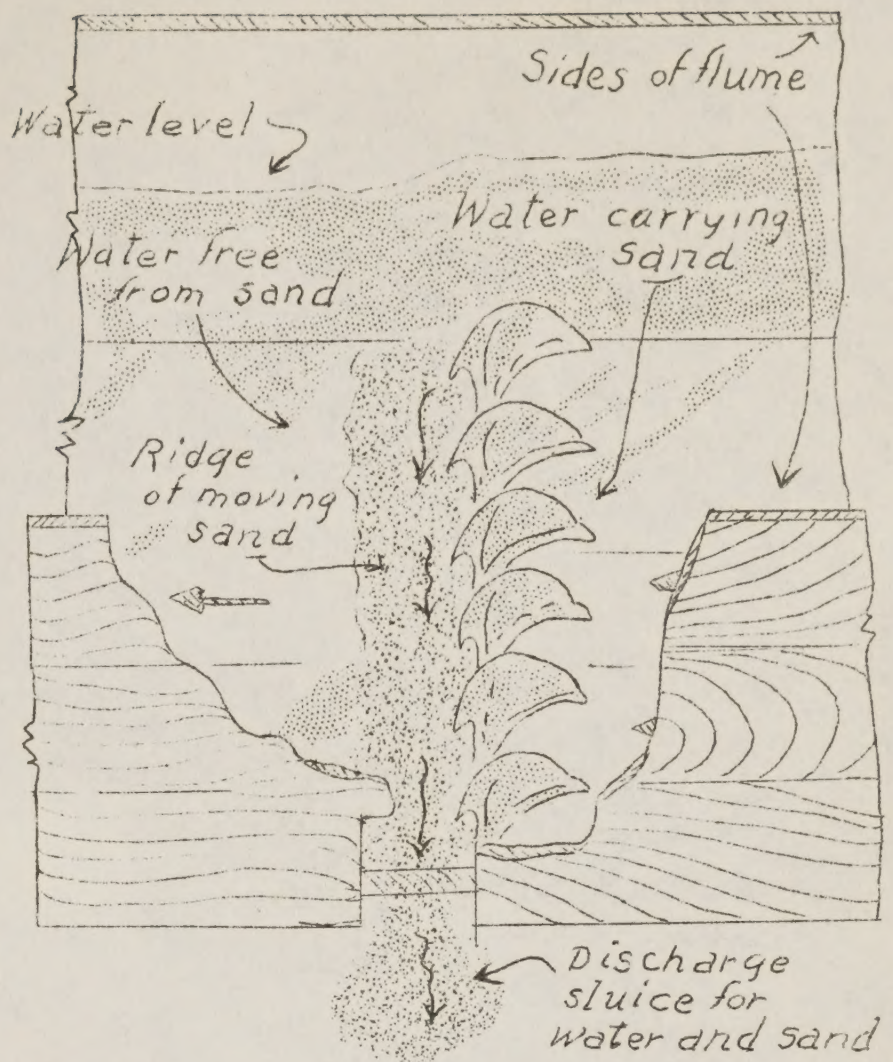 Sides of flume
Water level
Water carrying
sand
Water free
from sand
Ridge
of moving
sand
Discharge
sluice for
water and sand